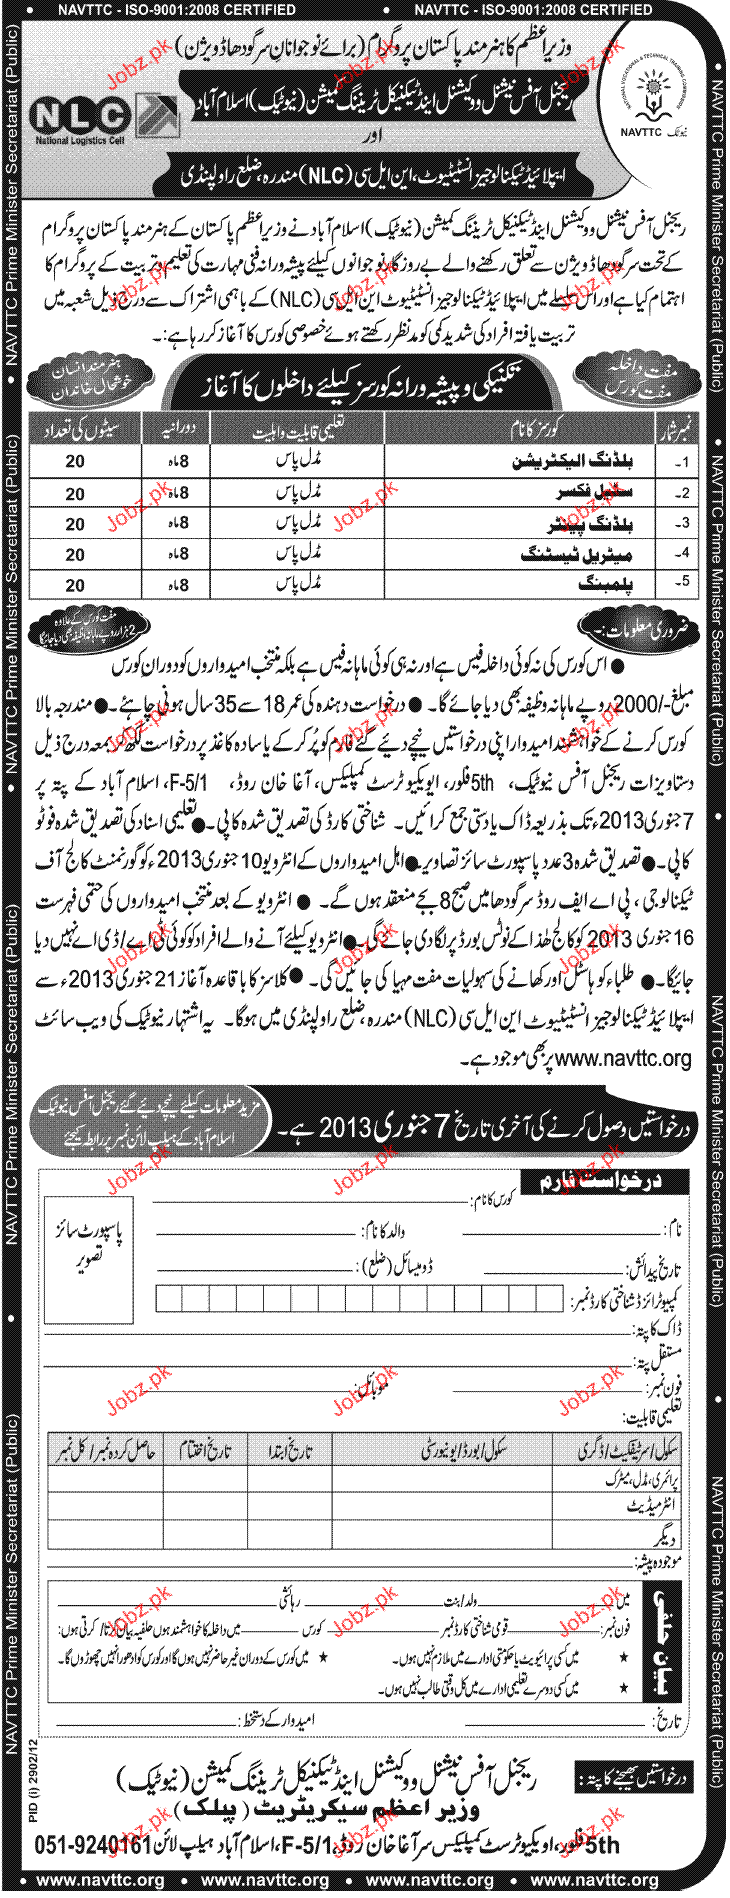 NAVTTC - ISO-9001:2008 CERTIFIED • NAVTTC - ISO-9001:2008 CERTIFIED
وزیراعظم کا ہنرمند پاکستان پروگرام (برائے نوجوانانِ سرگودھا ڈویژن)
ریجنل آفس نیشنل ووکیشنل اینڈ ٹیکنیکل ٹریننگ کمیشن (نیوٹیک) اسلام آباد
اور
ایپلائیڈ ٹیکنالوجیز انسٹیٹیوٹ، این ایل سی (NLC) مندرہ، ضلع راولپنڈی
NLC
National Logistics Cell
NATIONAL VOCATIONAL & TECHNICAL TRAINING COMMISSION
NAVTTC نیوٹک
ریجنل آفس نیشنل ووکیشنل اینڈ ٹیکنیکل ٹریننگ کمیشن (نیوٹیک) اسلام آباد نے وزیراعظم پاکستان کے ہنرمند پاکستان پروگرام
کے تحت سرگودھا ڈویژن سے تعلق رکھنے والے بے روزگار نوجوانوں کیلئے پیشہ ورانہ فنی مہارت کی تعلیم و تربیت کے پروگرام کا
اہتمام کیا ہے اور اس سلسلے میں ایپلائیڈ ٹیکنالوجیز انسٹیٹیوٹ این ایل سی (NLC) کے باہمی اشتراک سے درج ذیل شعبہ میں
تربیت یافتہ افراد کی شدید کمی کو مدنظر رکھتے ہوئے خصوصی کورس کا آغاز کر رہا ہے:۔
مفت داخلہ
مفت کورس
تکنیکی و پیشہ ورانہ کورسز کیلئے داخلوں کا آغاز
ہنرمند انسان
خوشحال خاندان
نمبر شمار کورسز کا نام تعلیمی قابلیت و اہلیت دورانیہ سیٹوں کی تعداد
1۔ بلڈنگ الیکٹریشن مڈل پاس 8 ماہ 20
2۔ سٹیل فکسر مڈل پاس 8 ماہ 20
3۔ بلڈنگ پینٹر مڈل پاس 8 ماہ 20
4۔ میٹریل ٹیسٹنگ مڈل پاس 8 ماہ 20
5۔ پلمبنگ مڈل پاس 8 ماہ 20
ضروری معلومات:۔
مفت کورس کے علاوہ
2 ہزار روپے ماہانہ وظیفہ بھی دیا جائیگا
● اس کورس کی نہ کوئی داخلہ فیس ہے اور نہ ہی کوئی ماہانہ فیس ہے بلکہ منتخب امیدواروں کو دوران کورس
مبلغ -/2000 روپے ماہانہ وظیفہ بھی دیا جائے گا۔ ● درخواست دہندہ کی عمر 18 سے 35 سال ہونی چاہئے۔ ● مندرجہ بالا
کورس کرنے کے خواہشمند امیدوار اپنی درخواستیں نیچے دیئے گئے فارم کو پُر کر کے یا سادہ کاغذ پر درخواست لکھ کر بمعہ درج ذیل
دستاویزات ریجنل آفس نیوٹیک، 5th فلور، ایویکیو ٹرسٹ کمپلیکس، آغا خان روڈ، F-5/1، اسلام آباد کے پتہ پر
7 جنوری 2013ء تک بذریعہ ڈاک یا دستی جمع کرائیں۔ شناختی کارڈ کی تصدیق شدہ کاپی۔ ● تعلیمی اسناد کی تصدیق شدہ فوٹو
کاپی۔ ● تصدیق شدہ 3 عدد پاسپورٹ سائز تصاویر ● اہل امیدواروں کے انٹرویو 10 جنوری 2013ء کو گورنمنٹ کالج آف
ٹیکنالوجی، پی اے ایف روڈ سرگودھا میں صبح 8 بجے منعقد ہوں گے۔ ● انٹرویو کے بعد منتخب امیدواروں کی حتمی فہرست
16 جنوری 2013 کو کالج ھذا کے نوٹس بورڈ پر لگا دی جائے گی۔ ● انٹرویو کیلئے آنے والے افراد کو کوئی ٹی اے/ڈی اے نہیں دیا
جائیگا۔ ● طلباء کو ہاسٹل اور کھانے کی سہولیات مفت مہیا کی جائیں گی۔ ● کلاسز کا باقاعدہ آغاز 21 جنوری 2013ء سے
ایپلائیڈ ٹیکنالوجیز انسٹیٹیوٹ این ایل سی (NLC) مندرہ، ضلع راولپنڈی میں ہوگا۔ یہ اشتہار نیوٹیک کی ویب سائٹ
www.navttc.org پر بھی موجود ہے۔
درخواستیں وصول کرنے کی آخری تاریخ 7 جنوری 2013 ہے۔
مزید معلومات کیلئے نیچے دیئے گئے ریجنل آفس نیوٹیک
اسلام آباد کے ہیلپ لائن نمبر پر رابطہ کیجئے
درخواست فارم
کورس کا نام:
پاسپورٹ سائز
تصویر
نام: والد کا نام:
تاریخ پیدائش: ڈومیسائل (ضلع):
کمپیوٹرائزڈ شناختی کارڈ نمبر:
ڈاک کا پتہ:
مستقل پتہ:
فون نمبر: موبائل:
تعلیمی قابلیت:
سکول/سرٹیفکیٹ/ڈگری سکول/بورڈ/یونیورسٹی تاریخ ابتدا تاریخ اختتام حاصل کردہ نمبر/کل نمبر
پرائمری، مڈل، میٹرک
انٹرمیڈیٹ
دیگر
موجودہ پیشہ:
بیان حلفی
میں ولد/بنت رہائشی
فون نمبر: قومی شناختی کارڈ نمبر کورس میں داخلہ کا خواہشمند ہوں حلفیہ بیان کرتا/کرتی ہوں:
★ میں کسی پرائیویٹ یا حکومتی ادارے میں ملازم نہیں ہوں۔ ★ میں کورس کے دوران غیر حاضر نہیں ہوں گا اور کورس کو ادھورا نہیں چھوڑوں گا۔
★ میں کسی دوسرے تعلیمی ادارے میں کل وقتی طالب نہیں ہوں۔
تاریخ: امیدوار کے دستخط:
درخواستیں بھیجنے کا پتہ:
ریجنل آفس نیشنل ووکیشنل اینڈ ٹیکنیکل ٹریننگ کمیشن (نیوٹیک)
وزیر اعظم سیکریٹریٹ (پبلک)
5th فلور، اویکیو ٹرسٹ کمپلیکس سر آغا خان روڈ، F-5/1، اسلام آباد ہیلپ لائن 051-9240161
PID (i) 2902/12
• www.navttc.org • www.navttc.org • www.navttc.org • www.navttc.org
NAVTTC Prime Minister Secretariat (Public)
Jobz.pk